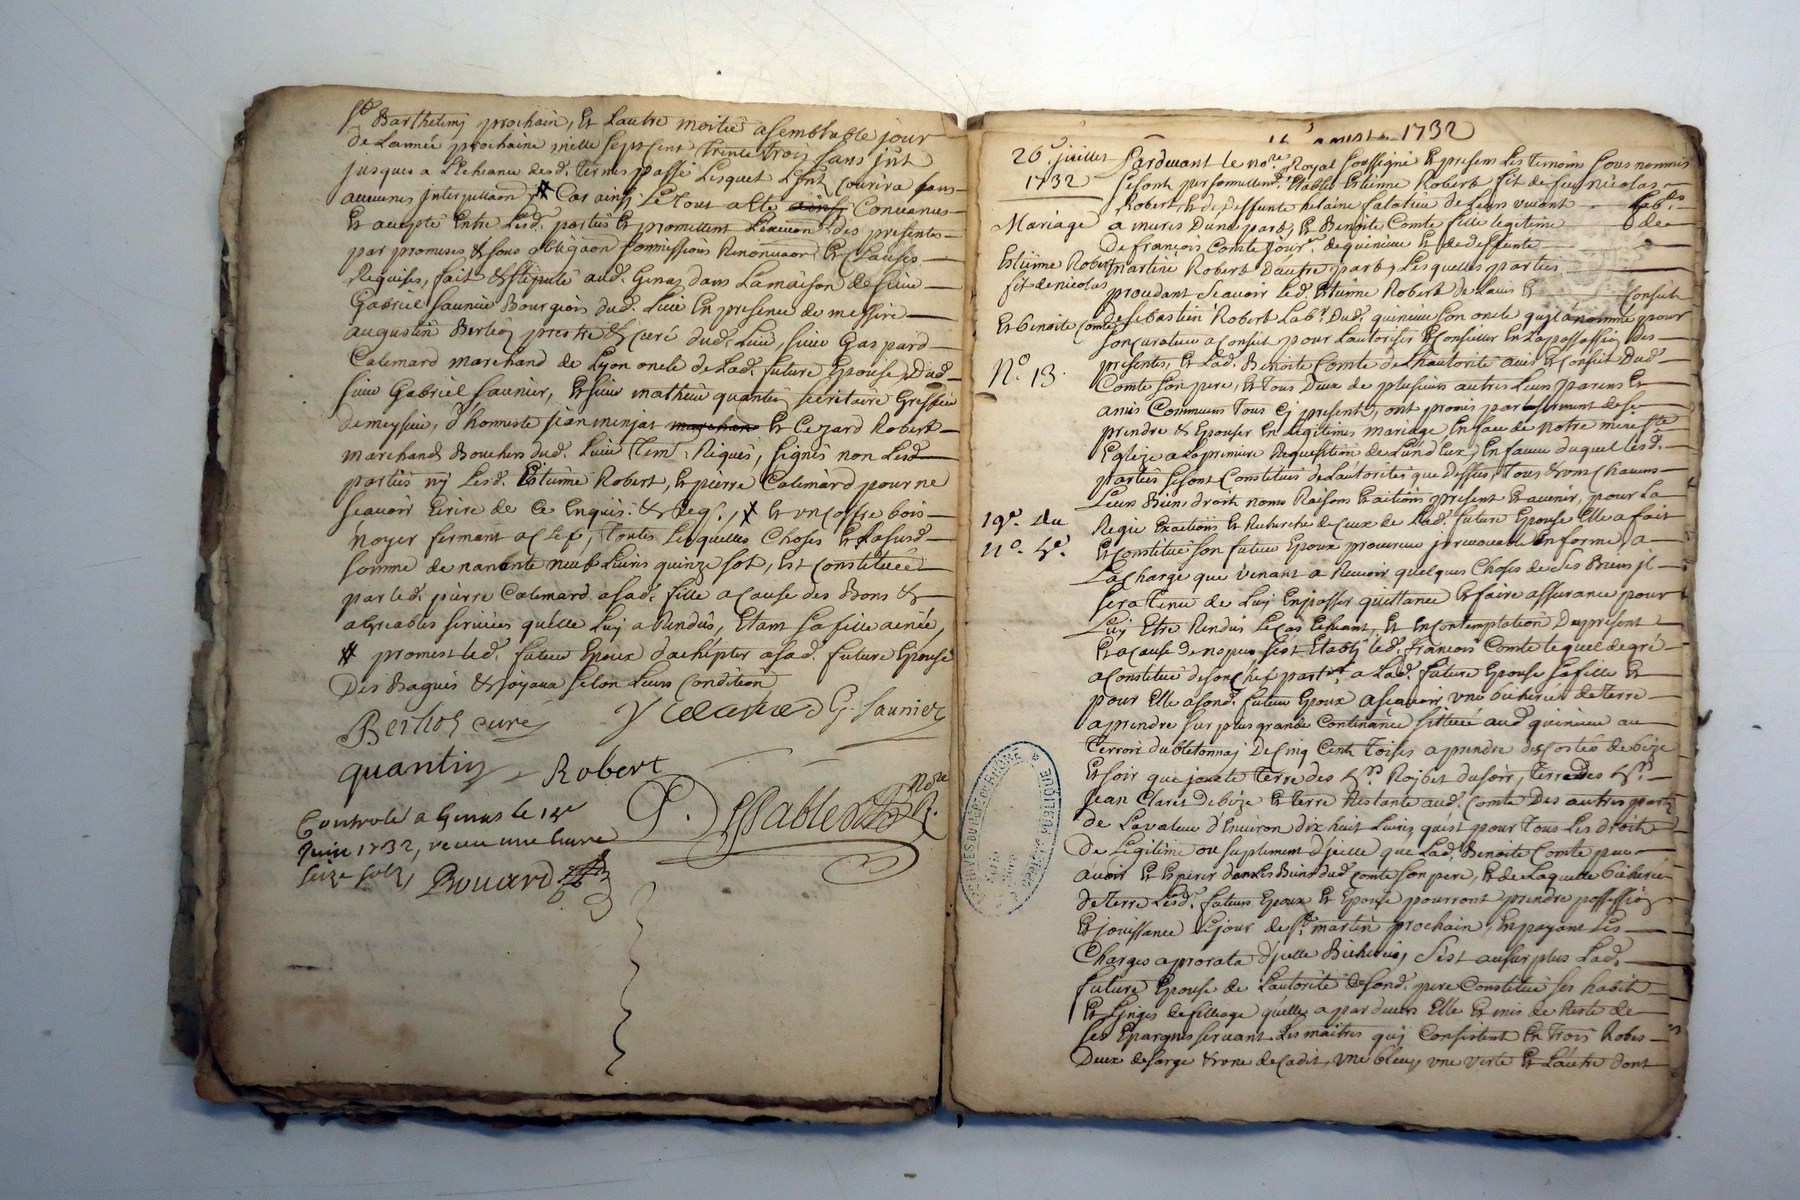 St Barthelmj prochain, Et Lautre moitié asemblable jour
de Lannée prochaine mille sept cent trente trois sans jnt
jusques a Lecheance desd. termes passé Lesquel Lint courira sans
aucunes jnterpellaon # Car ainsj Le tout a Eté ainsj Convenus
Et accepté Entre Lesd. parties Et promettent Lexecuon des presentes
par promises & sous obligaon soumissions Renonciaon Et Clauses
Requises, fait & stipulé aud. Genas dans Lamaison de sieur
Gabriel saunier Bourgeois dud. Lieu En presence de messire
augustin Berlioz prestre & curé dud. Lieu, sieur Gaspard
Calemard marchand de Lyon oncle de Lad. future Epouse, Dud.
sieur Gabriel saunier, Et sieur mathieu quantin secritaire Greffier
de meysieu, d'honneste jean minjat marchan Et Cezard Robert
marchands Bouchers dud. Lieu tém. Requis, signés non Lesd.
parties nj Lesd. Etienne Robert, Et pierre Calemard pour ne
scavoir Ecrire de Ce Enquis. & Req., # Et un coffre bois
noyer fermant a clef, toutes Lesquelles Choses Et Lasusd.
somme de nonente neuf Livres quinze sol, Est Constituée
par led. pierre Calemard asad. fille a cause des Bons &
agreables services quelle Luj a Rendus, Etant sa fille ainée,
# promest led. futeur Epoux d'achépter asad. future Epouse
Des Bagues & joyaux selon Leurs Condition
Berlioz curé G. Saunier
quantin Robert
Controlé a Genas le
Juin 1732, receu une livre
seize solz, Bouard
1732
26e juillet
1732
Mariage
Etienne Robert
fils de nicolas
Et benoite Comte
No. 13.
19e. du
no. 4e.
Pardevant le nore. Royal soussigné Et presens Les temoins sous nommés
se sont personnellemt. Etablis Etienne Robert fils de feu nicolas
Robert, Et de deffunte helaine falatieu de Leurs vivant Labrs
a mures Dune part, Et Benoite Comte fille legitime de
De françois Comte jour. de quincieu Et de deffunte
martine Robert Dautre part, Lesquelles parties
procedant scavoir Led. Etienne Robert de Lavis Et Consentt
de sebastien Robert Labr. Dud. quincieu son oncle quil a nommé pour
son curateur a Conseil pour Lautoriser & Conseiller En La passaon des
presentes, Et Lad. Benoite Comte de Lhautorité avis Et Conseil Dud.
Comte son pere, Et tous Deux de plusieurs autres Leurs parens Et
amis Communs tous Cj present, ont promis par serment de se
prendre & Epouser En Legitimes mariage En face de notre mere ste
Eglize a Lapremiere Requesition de L'un d'Eux, En faveur duquel Lesd.
parties se sont Constitués de Lautorités que dessus, tous & uns Chacuns
Leurs Biens droits noms Raisons Et actions present Et avenir, pour La
Regie Exactions Et Recherche de Ceux de Lad. future Epouse Elle a fait
Et constitué son futeur Epoux procureur jrrevocable En forme, a
La charge que venant a Recevoir quelques Choses de ses Biens jl
sera tenu de Luj En passer quittance & faire assurance pour
Luj Etre Rendus Le Cas Echeant, Et En Contemplation Du present
Et a cause de nopces s'est Etablj led. francois Comte lequel de gré
a Constitué de son Chef partr. a Lad. future Epouse sa fille Et
pour Elle a sond. futeur Epoux ascavoir une bicherée de terre
a prendre sur plus grande Continance sittueé aud. quincieu au
terroir du bletonnaj De Cinq Cents toises a prendre des Costés de bize
Et soir que jouxte terre des hrs Roibet du soir, terre des hrs
jean Claret de bize Et terre Restante aud. Comte Des autres parts
de La valeur d'Environ dix huit Livres quest pour tous Les droits
de Legitime ou suplement d'jcelle que Lad. Benoite Comte peu
avoir Et Esperer dans Les Biens dud. Comte son pere, Et de Laquelle bicherée
de terre Lesd. futeurs Epoux Et Epouse pourront prendre possession
Et jouissance Le jour de st. martin prochain, En payant Les
Charges aprorata d'jcelle Bicherée, s'est au surplus Lad.
future Epouse de L'autorité de sond. pere Constituée ses habits
Et Linges de fillage quelle a par devers Elle Et mis de Reste de
ses Epargnes servant Les maitres quj Consistent En trois Robes
Deux de sarge & une de Cadis, une bleuë une verte Et L'autre dont